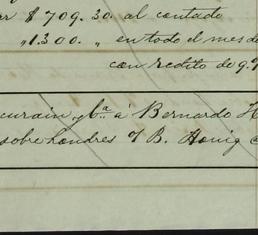 $709.30. al contado
„ 1.300. „ en todo el mes de
con redito de 9.
y Cª a Bernardo H
sobre Londres